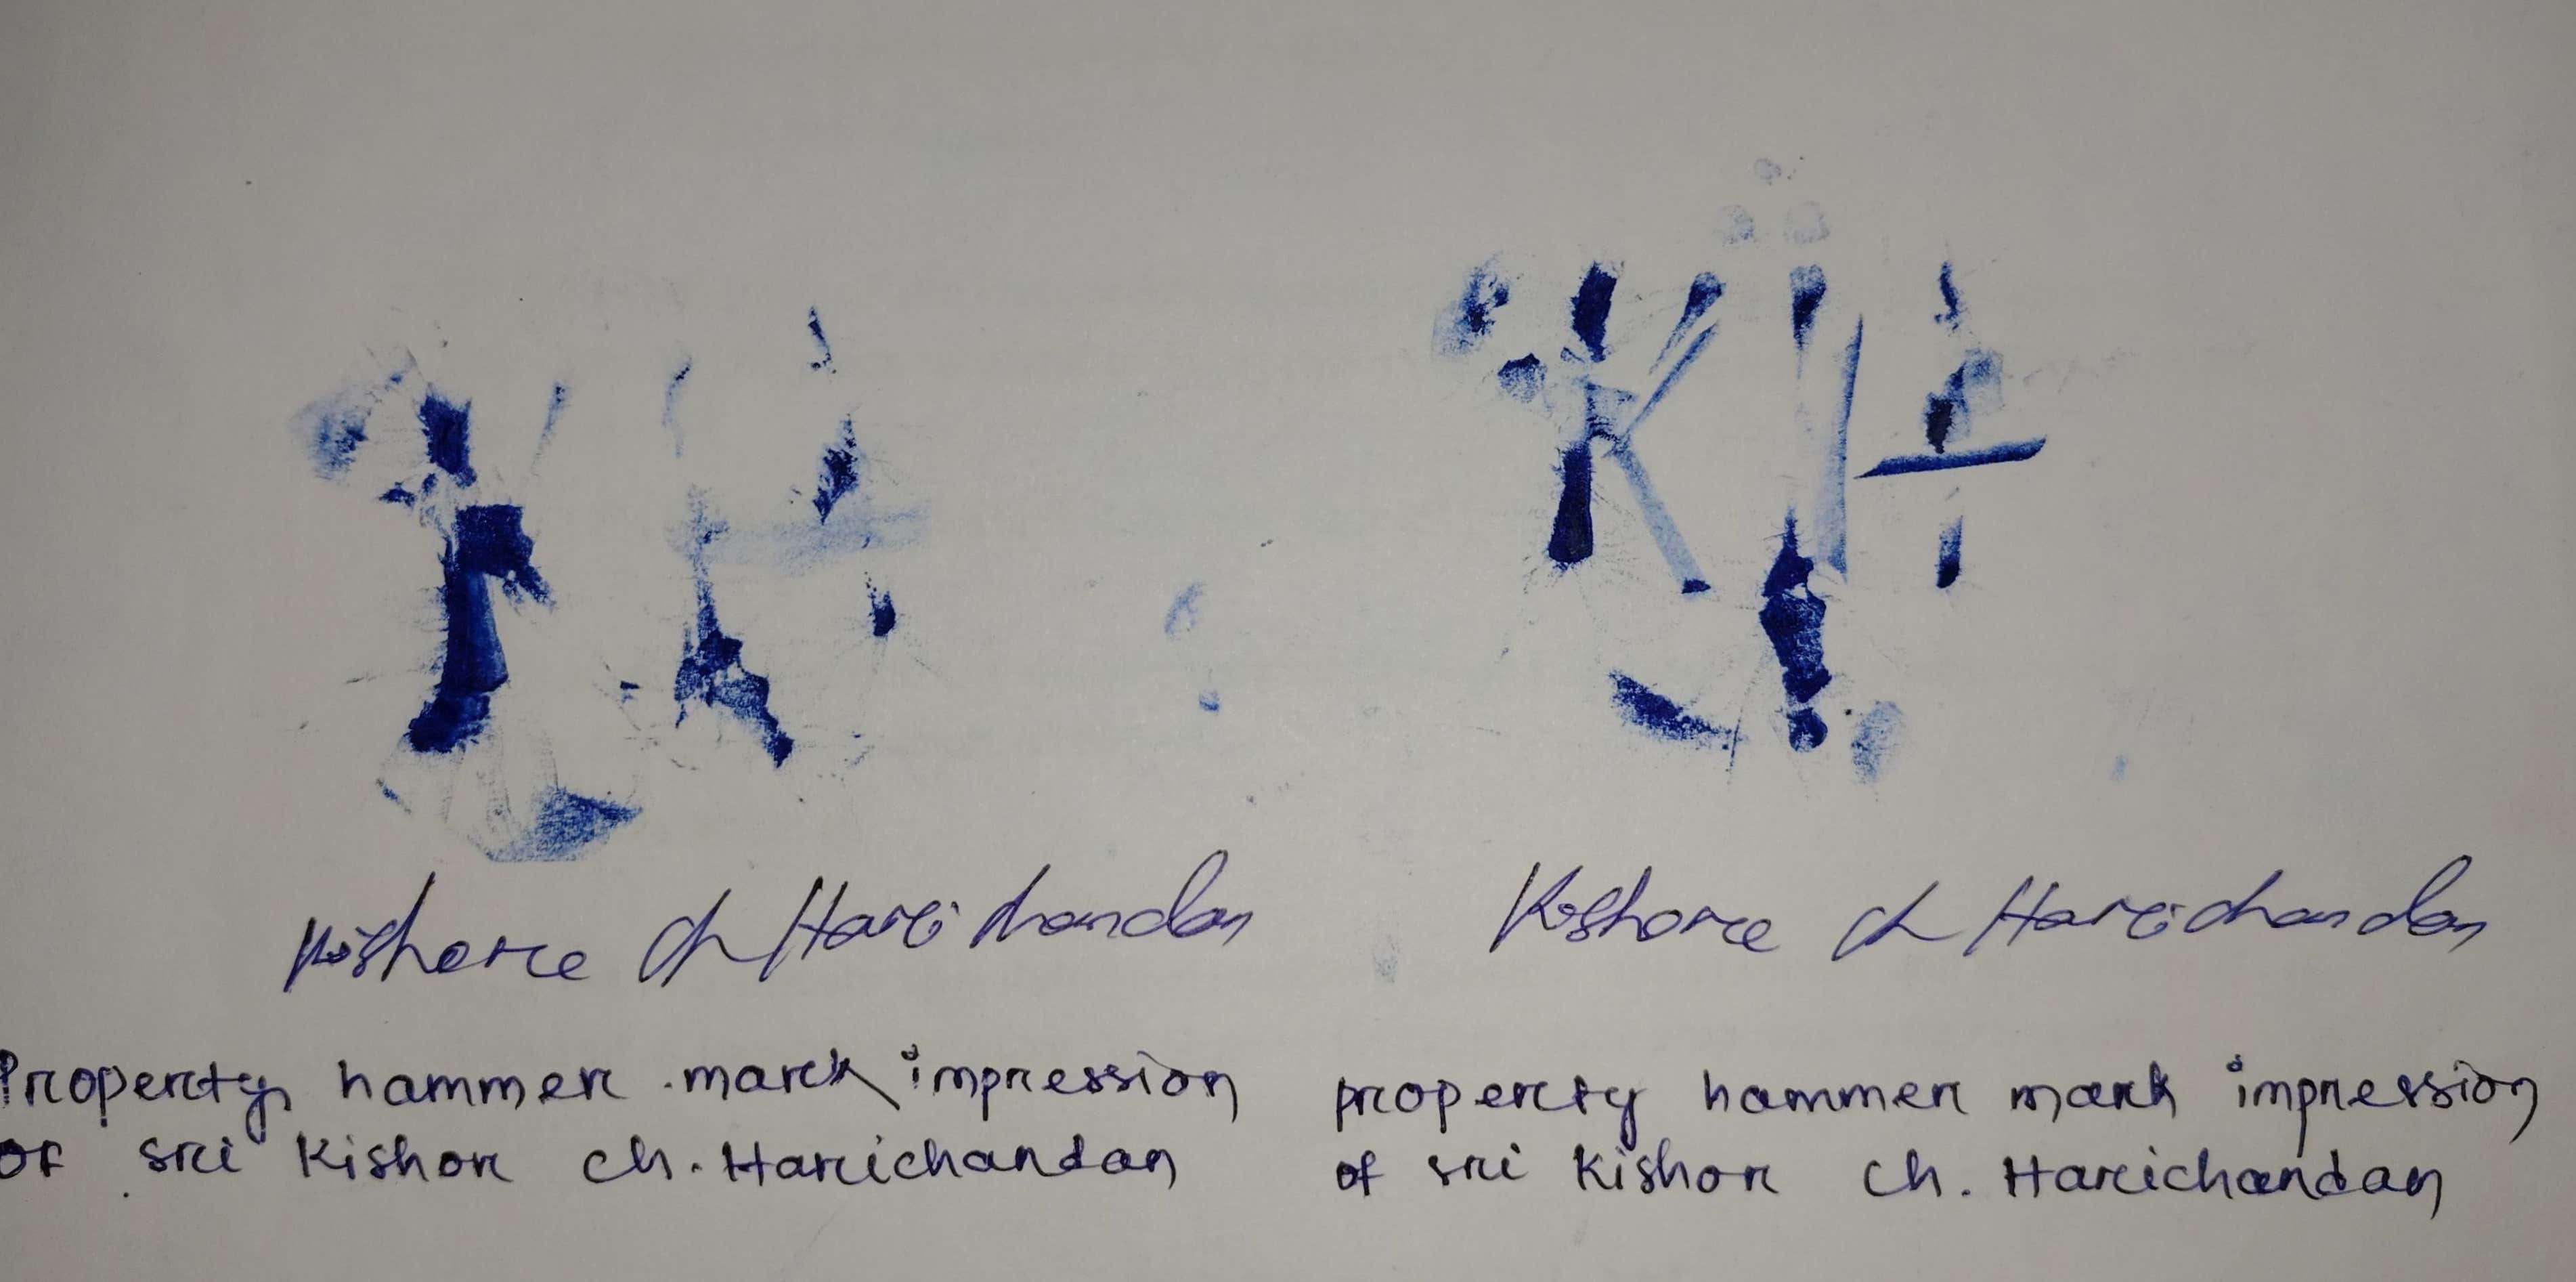 KH
KH
Kishore Ch Harichandan
Kishore Ch Harichandan
Property hammer mark impression
of sri Kishor ch. Harichandan
property hammer mark impression
of sri Kishor ch. Harichandan